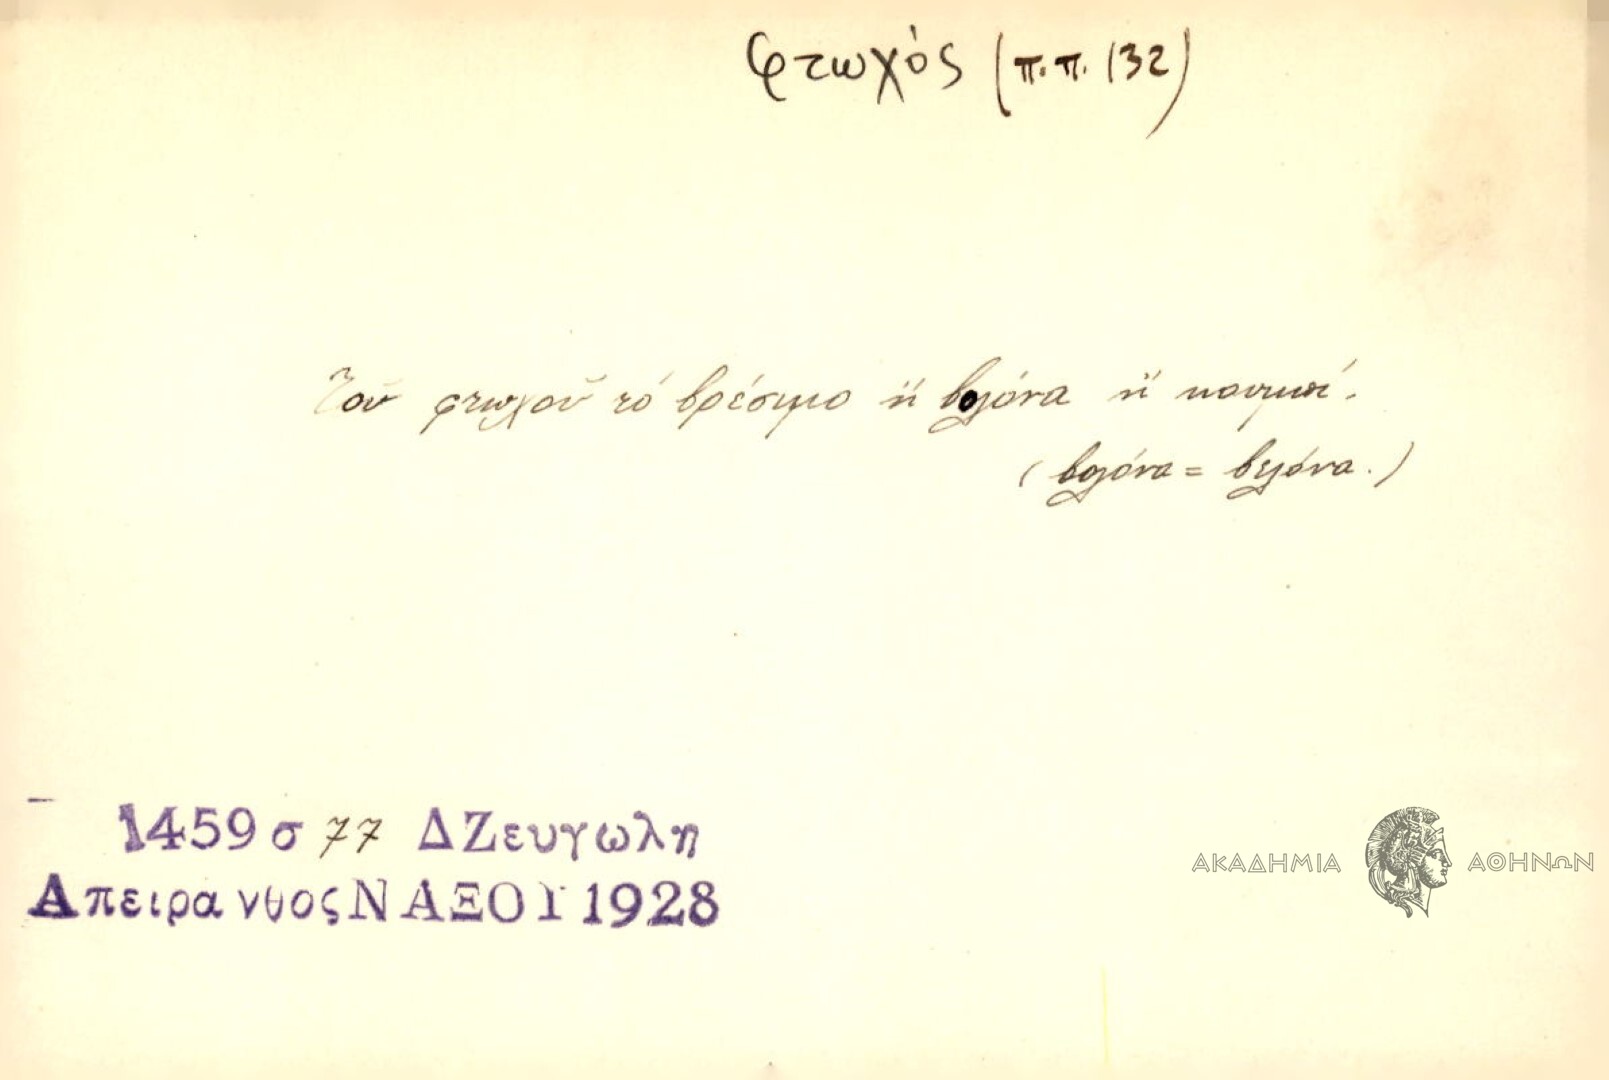 φτωχός (π.π. 132)
Τοῦ φτωχοῦ τό βρέσιμο ἤ βολόνα ἤ κουμπί.
(βολόνα = βελόνα.)
1459 σ 77 ΔΖευγωλη
Απειρανθος ΝΑΞΟΥ 1928
ΑΚΑΔΗΜΙΑ ΑΘΗΝΩΝ